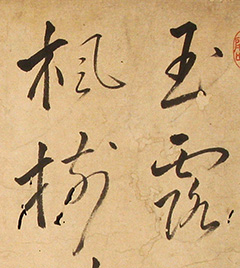 玉露
楓樹